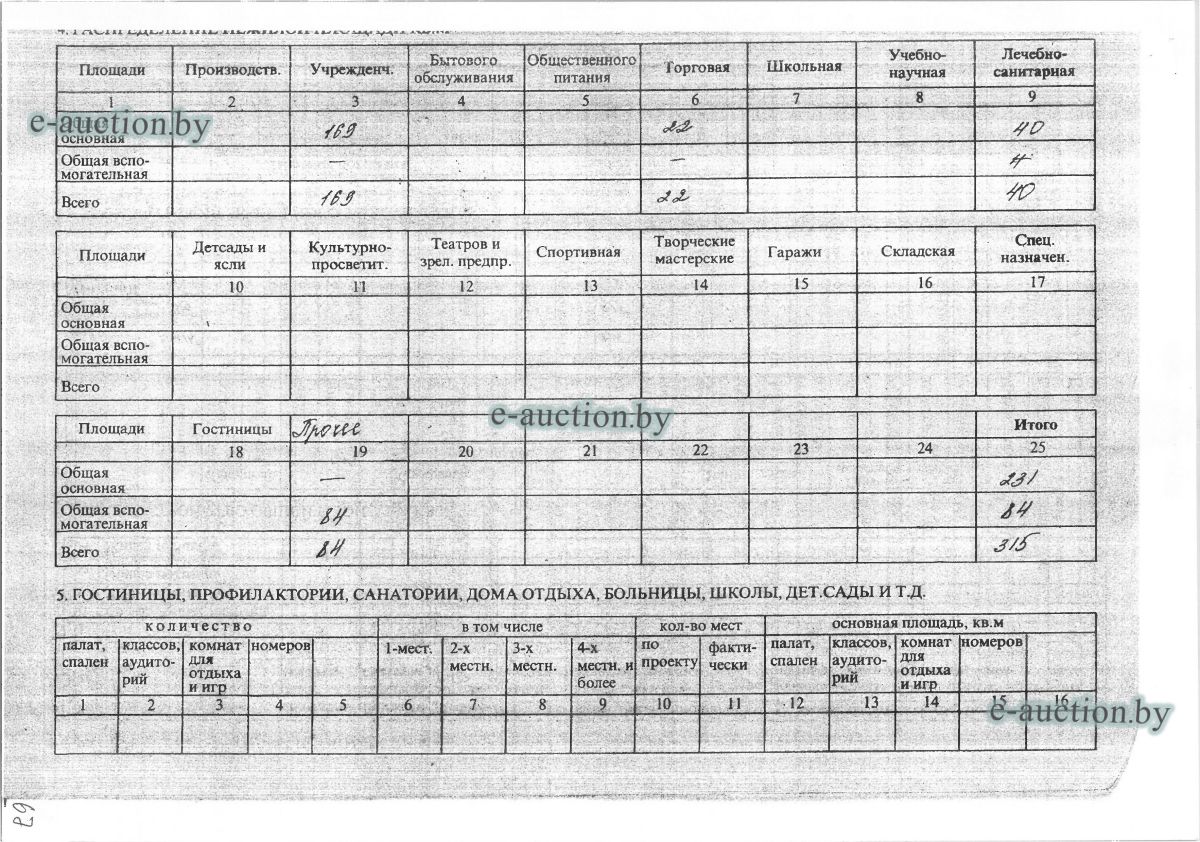 4. РАСПРЕДЕЛЕНИЕ НЕЖИЛОЙ ПЛОЩАДИ КВ.М.
Площади Производств. Учрежденч. Бытового обслуживания Общественного питания Торговая Школьная Учебно-научная Лечебно-санитарная
1 2 3 4 5 6 7 8 9
Общая основная 169 22 40
Общая вспомогательная — — 4
Всего 169 22 40
Площади Детсады и ясли Культурно-просветит. Театров и зрел. предпр. Спортивная Творческие мастерские Гаражи Складская Спец. назначен.
10 11 12 13 14 15 16 17
Общая основная
Общая вспомогательная
Всего
Площади Гостиницы Прочее Итого
18 19 20 21 22 23 24 25
Общая основная — 231
Общая вспомогательная 84 84
Всего 84 315
5. ГОСТИНИЦЫ, ПРОФИЛАКТОРИИ, САНАТОРИИ, ДОМА ОТДЫХА, БОЛЬНИЦЫ, ШКОЛЫ, ДЕТ.САДЫ И Т.Д.
количество в том числе кол-во мест основная площадь, кв.м
палат, спален классов, аудиторий комнат для отдыха и игр номеров 1-мест. 2-х местн. 3-х местн. 4-х местн. и более по проекту фактически палат, спален классов, аудиторий комнат для отдыха и игр номеров
1 2 3 4 5 6 7 8 9 10 11 12 13 14 15 16
e-auction.by
e-auction.by
e-auction.by